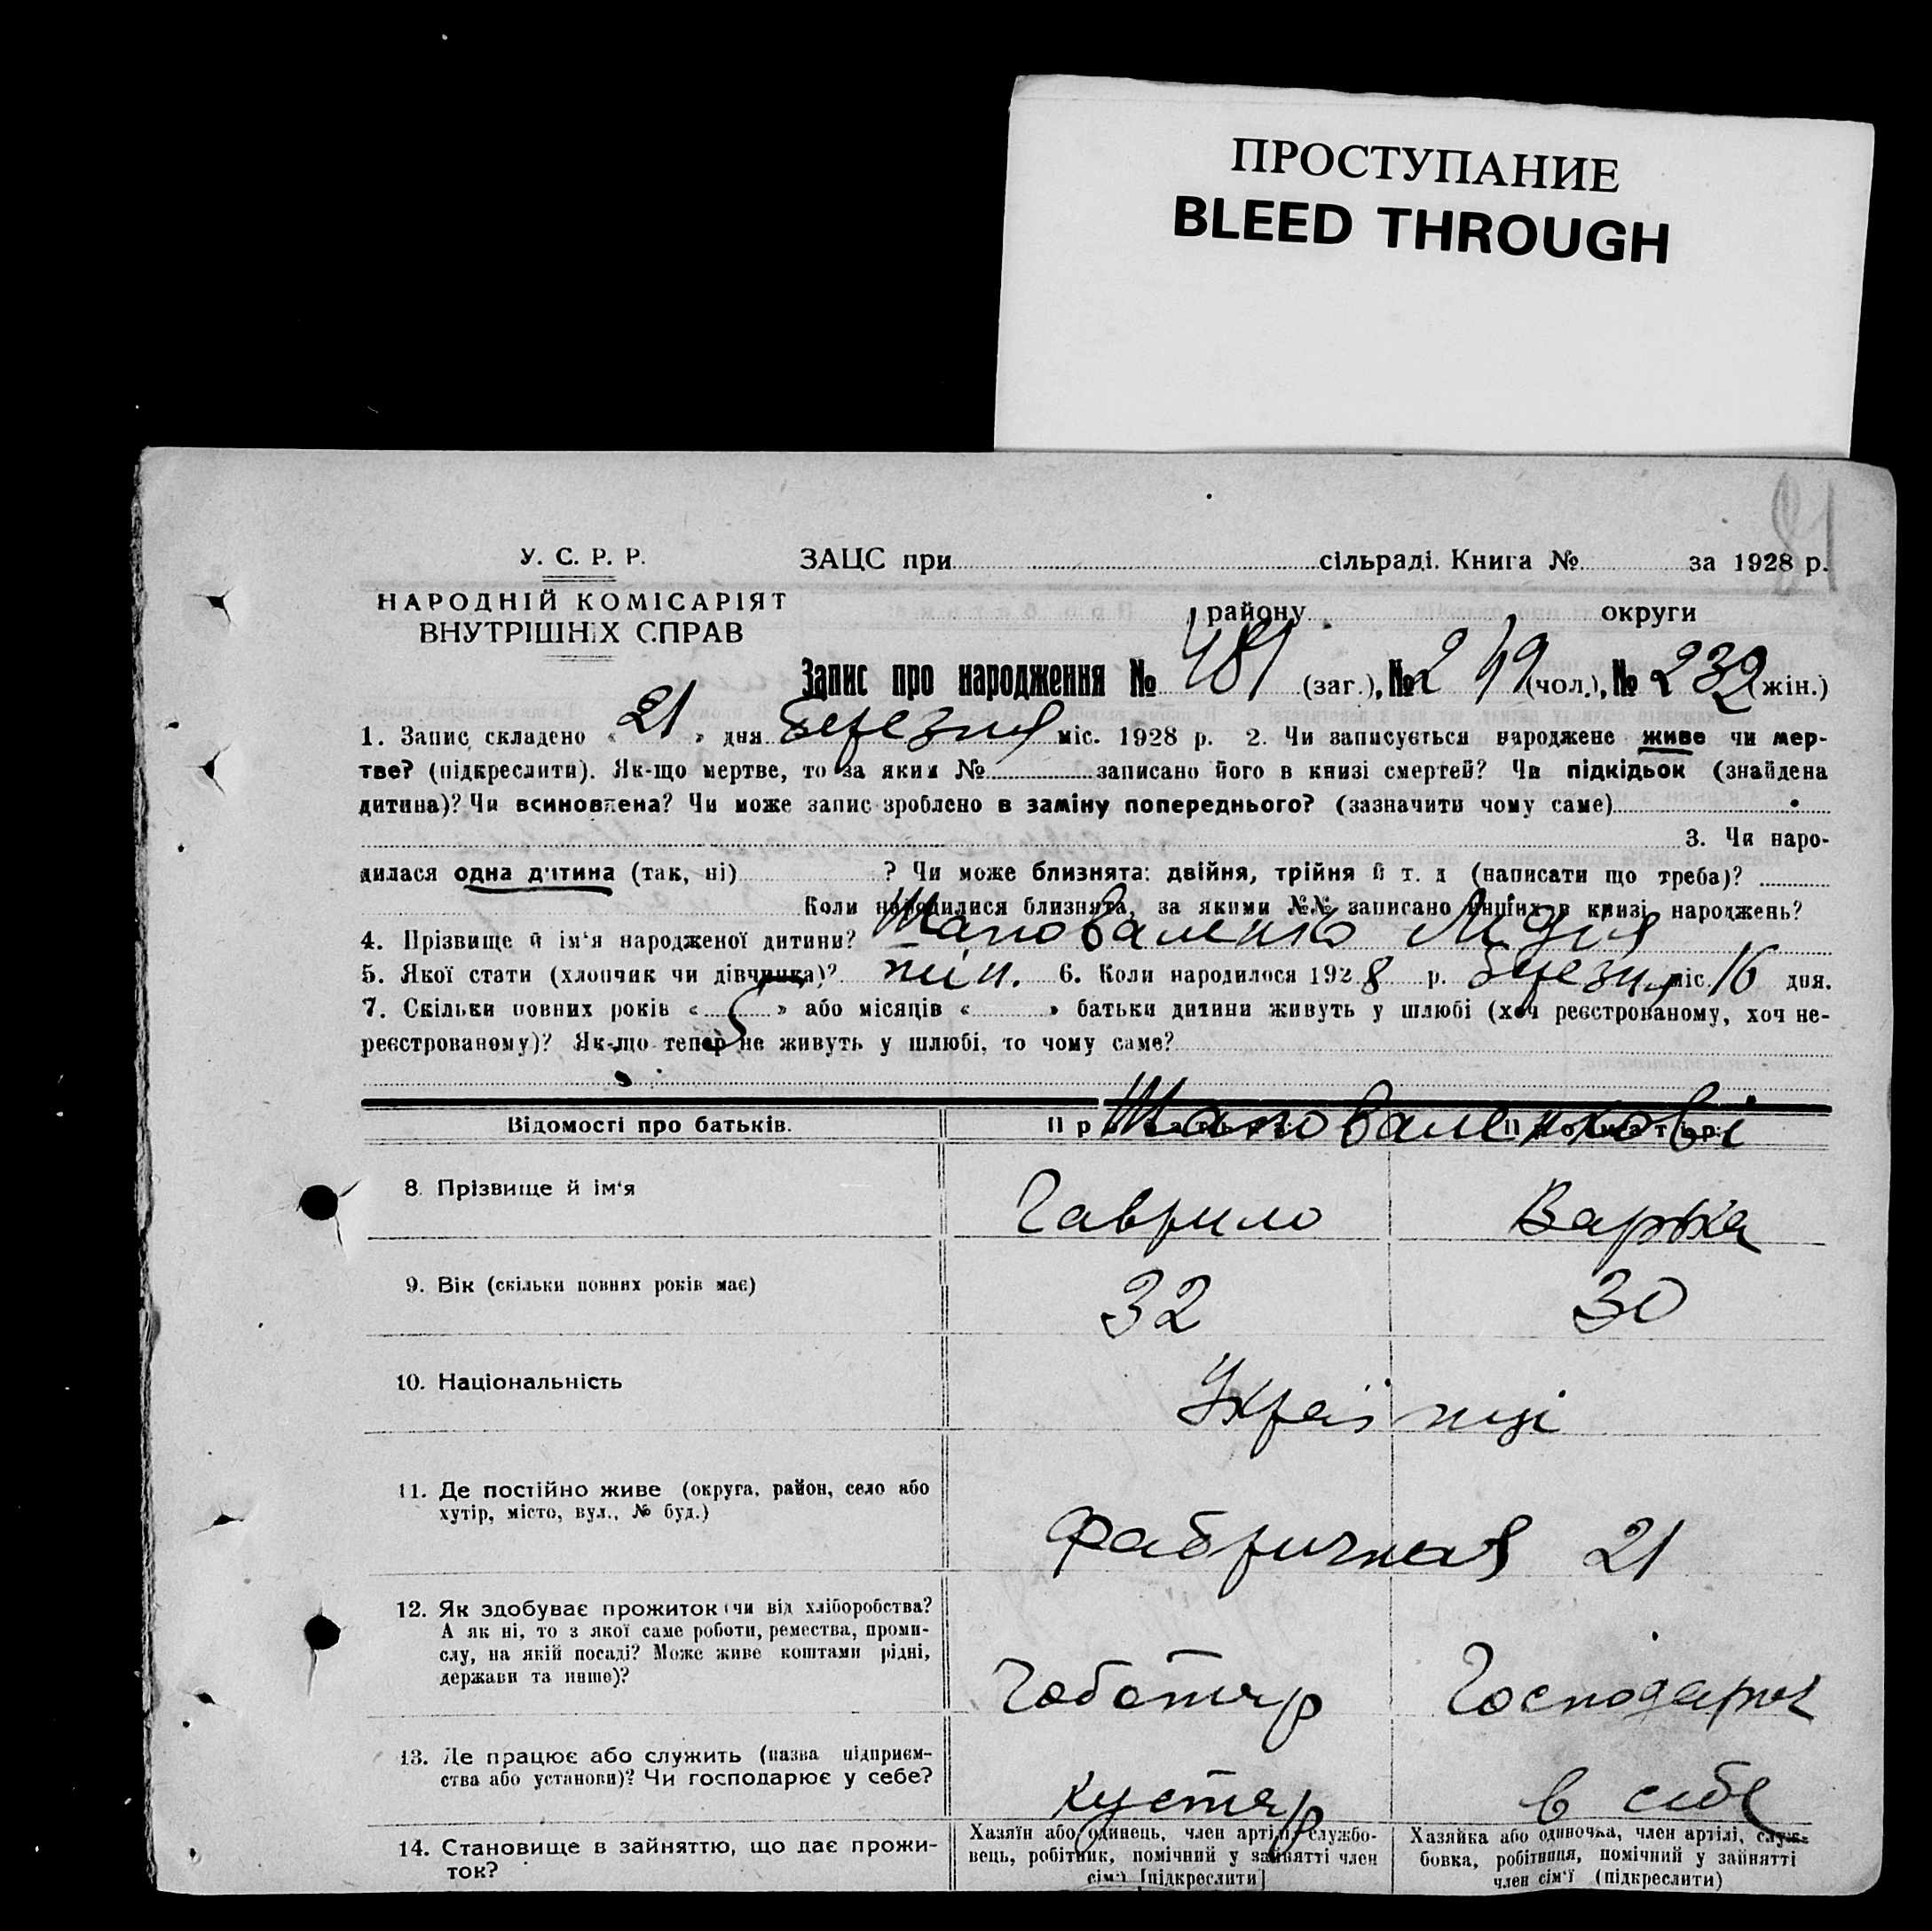 ПРОСТУПАНИЕ
BLEED THROUGH
У. С. Р. Р.
ЗАЦС при сільраді. Книга № за 1928 р.
НАРОДНІЙ КОМІСАРІЯТ
ВНУТРІШНІХ СПРАВ
району округи
Запис про народження № 481 (заг.), № 249 (чол.), № 232 (жін.)
1. Запис складено « 21 » дня Березня міс. 1928 р. 2. Чи записується народжене живе чи мер-
тве? (підкреслити). Як-що мертве, то за яким № записано його в книзі смертей? Чи підкідьок (знайдена
дитина)? Чи всиновлена? Чи може запис зроблено в заміну попереднього? (зазначити чому саме)
3. Чи наро-
дилася одна дитина (так, ні) ? Чи може близнята: двійня, трійня й т. д (написати що треба)?
Коли народилися близнята, за якими №№ записано інших в книзі народжень?
4. Прізвище й ім'я народженої дитини? Шаповаленко Лідія
5. Якої стати (хлопчик чи дівчинка)? жін. 6. Коли народилося 1928 р. березня міс. 16 дня.
7. Скільки повних років « 5 » або місяців « » батьки дитини живуть у шлюбі (хоч реєстрованому, хоч не-
реєстрованому)? Як-що тепер не живуть у шлюбі, то чому саме?
Шаповаленкові
Відомості про батьків.
8. Прізвище й ім'я Гаврило Варька
9. Вік (скільки повних років має) 32 30
10. Національність Українці
11. Де постійно живе (округа, район, село або
хутір, місто, вул., № буд.)
Фабричная 21
12. Як здобуває прожиток (чи від хліборобства?
А як ні, то з якої саме роботи, ремества, проми-
слу, на якій посаді? Може живе коштами рідні,
держави та инше)?
Чоботяр Господарка
13. Де працює або служить (назва підприєм-
ства або установи)? Чи господарює у себе?
Кустяр в себе
14. Становище в зайняттю, що дає прожи-
ток?
Хазяїн або одинець, член артілі, службо-
вець, робітник, помічний у зайнятті член
сім'ї [підкреслити]
Хазяйка або одиночка, член артілі, служ-
бовка, робітниця, помічний у зайнятті
член сім'ї (підкреслити)